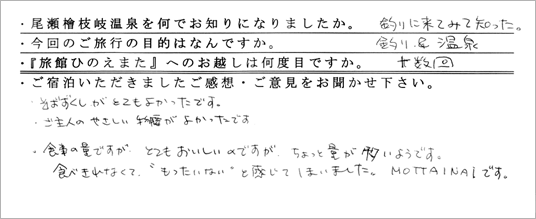 ・尾瀬檜枝岐温泉を何でお知りになりましたか。 釣りに来てみて知った。
・今回のご旅行の目的はなんですか。 釣り&温泉
・『旅館ひのえまた』へのお越しは何度目ですか。 十数回
・ご宿泊いただきましたご感想・ご意見をお聞かせ下さい。
・そばずくしがとてもよかったです。
・ご主人のやさしい笑顔がよかったです
・食事の量ですが、とてもおいしいのですが、ちょっと量が多いようです。
食べきれなくて、"もったいない"と感じてしまいました。MOTTAINAIです。